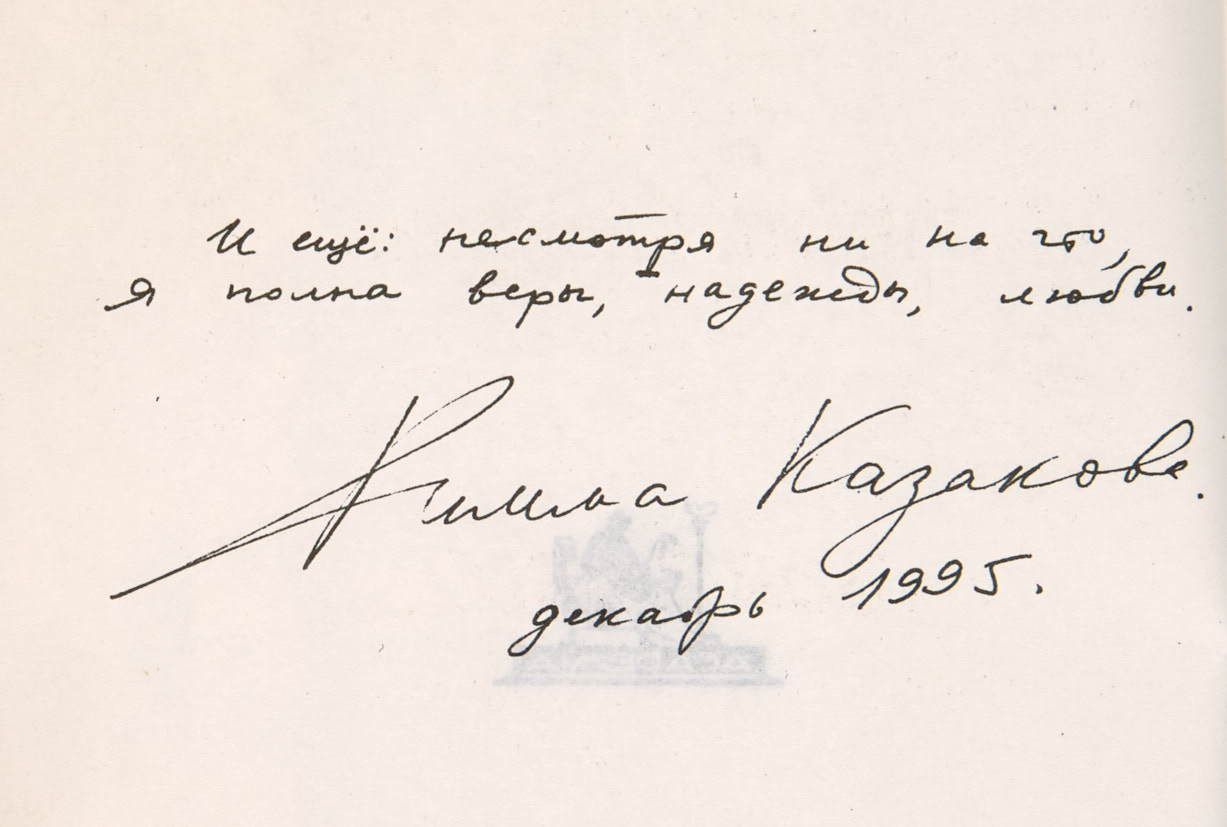 И ещё: несмотря ни на что,
я полна веры, надежды, любви.
Римма Казакова.
декабрь 1995.